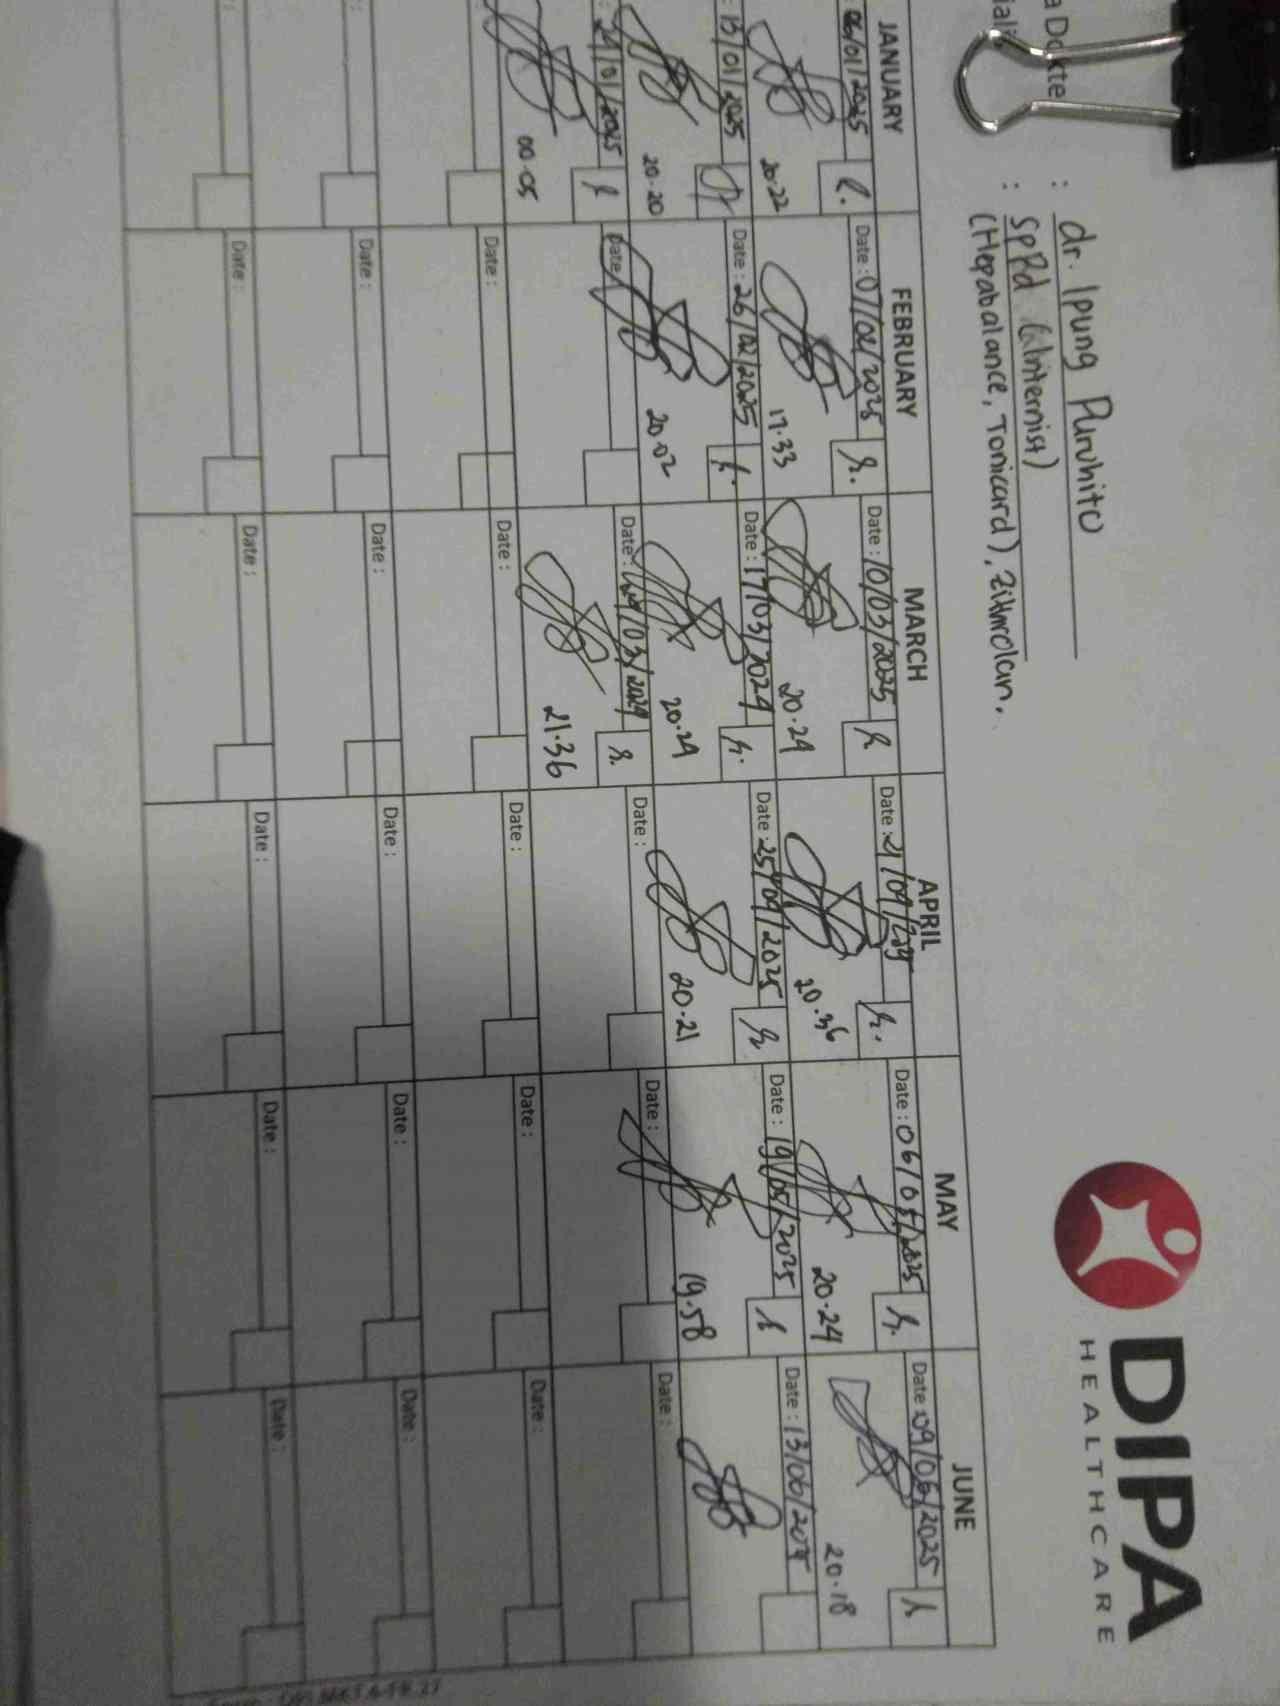 DIPA
HEALTHCARE
: dr. Ipung Puruhito
: SpPd (Internist)
(Hepabalance, Tonicard),
JANUARY FEBRUARY MARCH APRIL MAY JUNE
: 06/01/2025 Date : 07/02/2025 Date : 10/03/2025 Date : 21/04/ Date : 06/05/2025 Date : 09/06/2025
20.22 17.33 20.24 20.36 20.24 20.18
: 13/01/2025 Date : 26/02/2025 Date : 17/03/2024 Date : 25/04/2025 Date : 19/05/2025 Date : 13/06/
20.20 20.02 20.24 20.21 19.58
/01/2025 Date : Date : /03/ Date : Date : Date :
00.05 21.36
Date : Date : Date : Date : Date :
Date : Date : Date : Date : Date :
Date : Date : Date : Date : Date :